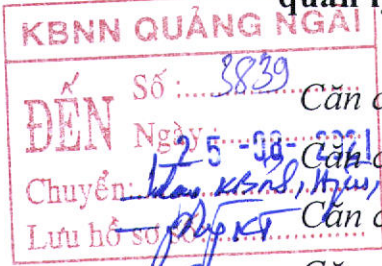 quản l
KBNN QUẢNG NGÃI
ĐẾN
Số : 3839
Ngày: 25 -08- 2021
Chuyển:
Lưu hồ sơ số
Căn c
Căn c
Căn c
Căn c